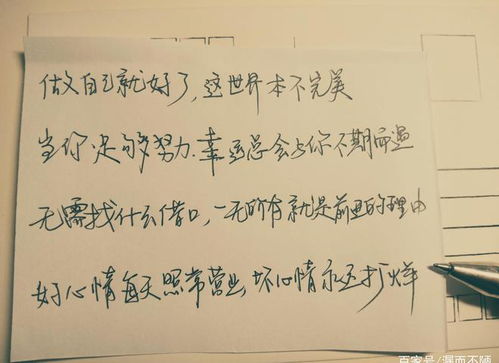 做自己就好了,这世界本不完美
当你足够努力.幸运总会与你不期而遇
无需找什么借口,一无所有就是前进的理由
好心情每天照常营业,坏心情永远打烊
百家号/漏而不陋